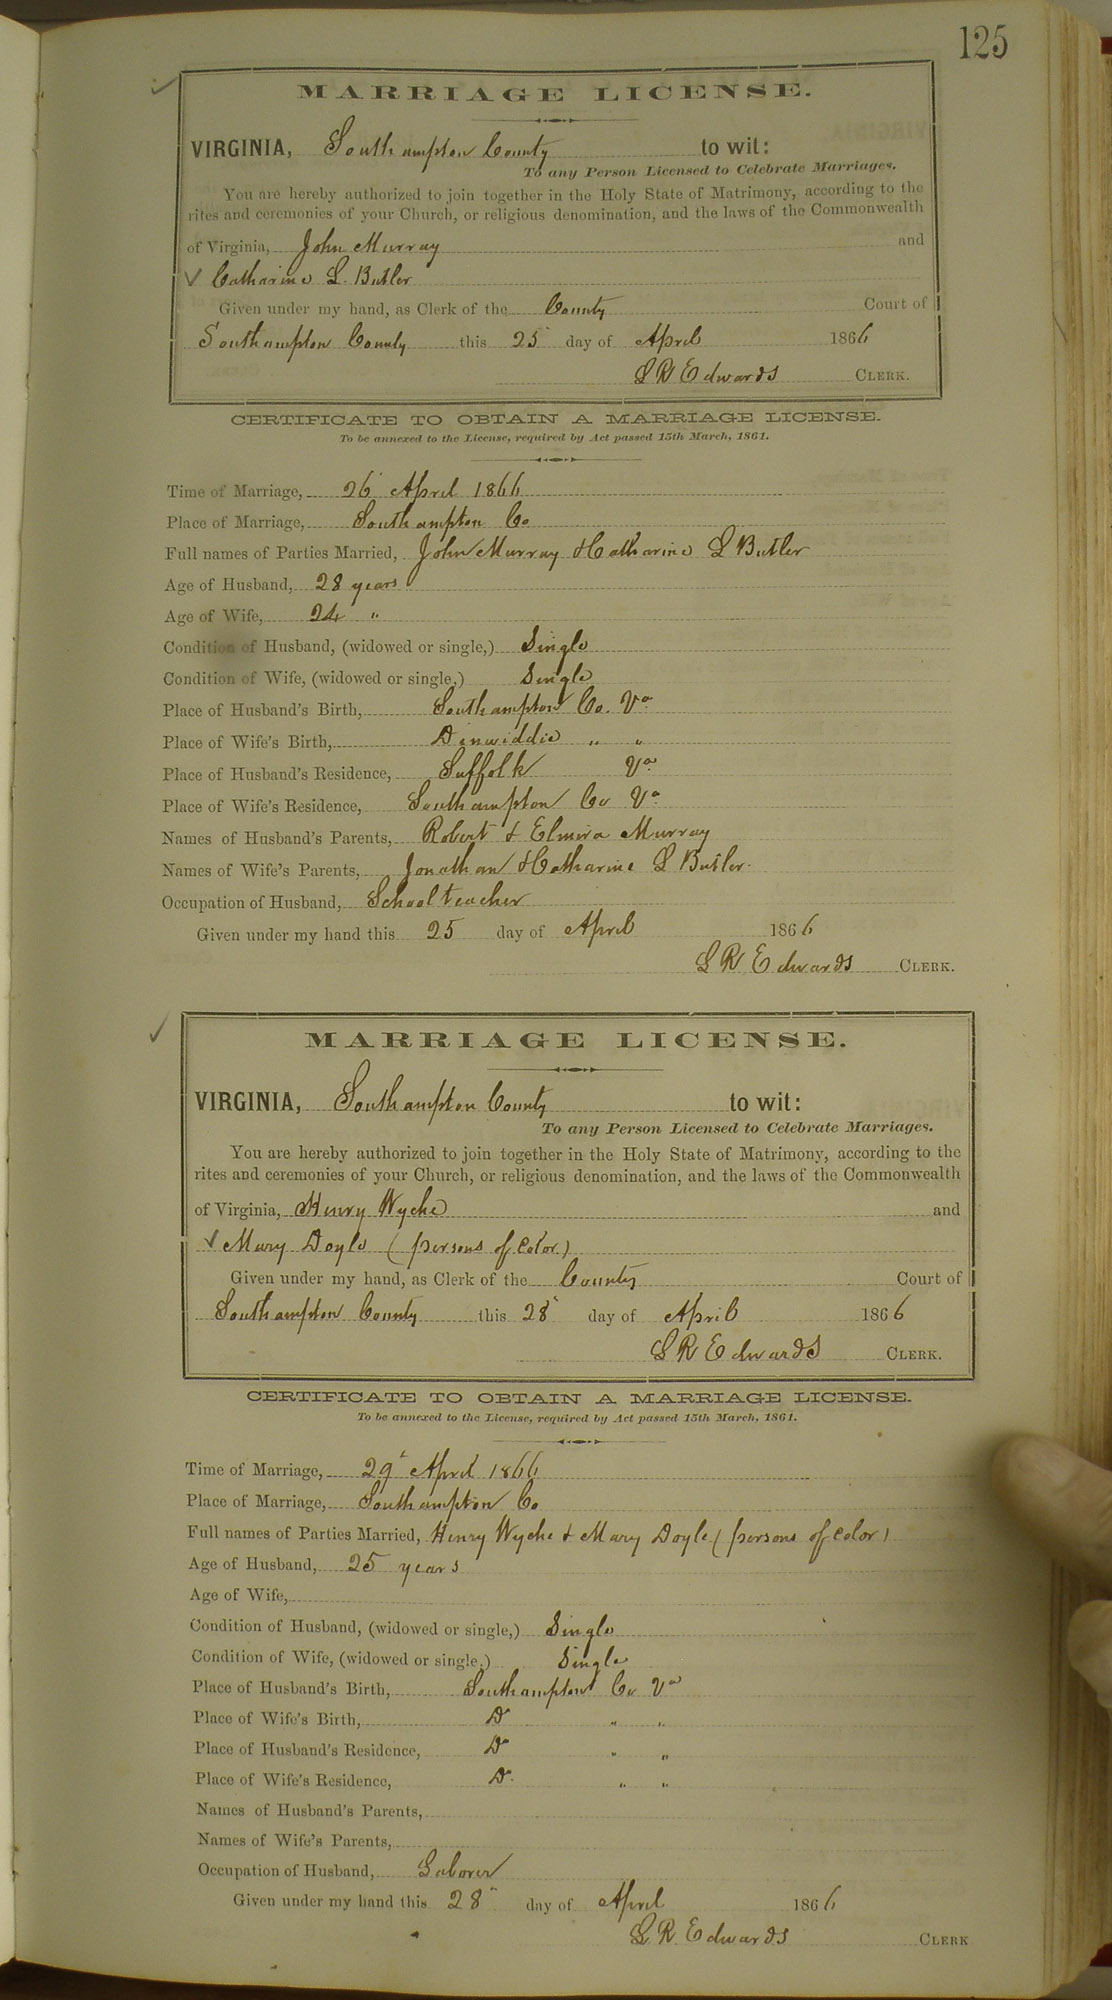 125
MARRIAGE LICENSE.
VIRGINIA, Southampton County to wit:
To any Person Licensed to Celebrate Marriages.
You are hereby authorized to join together in the Holy State of Matrimony, according to the
rites and ceremonies of your Church, or religious denomination, and the laws of the Commonwealth
of Virginia, John Murray and
✓ Catharine L. Butler
Given under my hand, as Clerk of the County Court of
Southampton County this 25 day of April 1866
L R Edwards CLERK.
CERTIFICATE TO OBTAIN A MARRIAGE LICENSE.
To be annexed to the License, required by Act passed 15th March, 1861.
Time of Marriage, 26 April 1866
Place of Marriage, Southampton Co
Full names of Parties Married, John Murray & Catharine L Butler
Age of Husband, 28 years
Age of Wife, 24 "
Condition of Husband, (widowed or single,) Single
Condition of Wife, (widowed or single,) Single
Place of Husband's Birth, Southampton Co. Va
Place of Wife's Birth, Dinwiddie " "
Place of Husband's Residence, Suffolk Va
Place of Wife's Residence, Southampton Co Va
Names of Husband's Parents, Robert & Elmira Murray
Names of Wife's Parents, Jonathan & Catharine L Butler.
Occupation of Husband, School teacher
Given under my hand this 25 day of April 1866
L R Edwards CLERK.
MARRIAGE LICENSE.
VIRGINIA, Southampton County to wit:
To any Person Licensed to Celebrate Marriages.
You are hereby authorized to join together in the Holy State of Matrimony, according to the
rites and ceremonies of your Church, or religious denomination, and the laws of the Commonwealth
of Virginia, Henry Wyche and
✓ Mary Doyle (persons of color)
Given under my hand, as Clerk of the County Court of
Southampton County this 28 day of April 1866
L R Edwards CLERK.
CERTIFICATE TO OBTAIN A MARRIAGE LICENSE.
To be annexed to the License, required by Act passed 15th March, 1861.
Time of Marriage, 29 April 1866
Place of Marriage, Southampton Co
Full names of Parties Married, Henry Wyche & Mary Doyle (persons of color)
Age of Husband, 25 years
Age of Wife,
Condition of Husband, (widowed or single,) Single
Condition of Wife, (widowed or single,) Single
Place of Husband's Birth, Southampton Co Va
Place of Wife's Birth, Do " "
Place of Husband's Residence, Do " "
Place of Wife's Residence, Do " "
Names of Husband's Parents,
Names of Wife's Parents,
Occupation of Husband, Laborer
Given under my hand this 28 day of April 1866
L R. Edwards CLERK